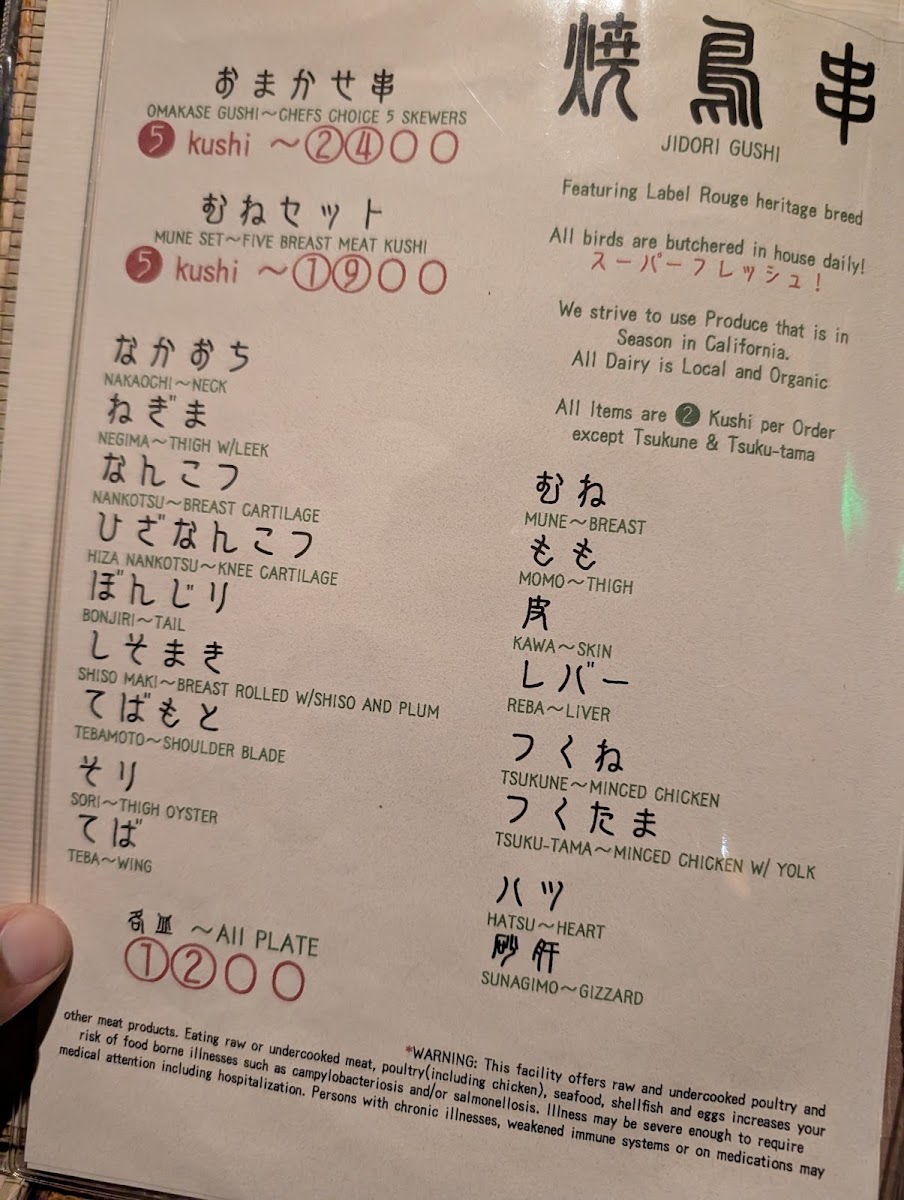 焼鳥串
JIDORI GUSHI
おまかせ串
OMAKASE GUSHI～CHEFS CHOICE 5 SKEWERS
5 kushi ～2400
むねセット
MUNE SET～FIVE BREAST MEAT KUSHI
5 kushi ～1900
なかおち
NAKAOCHI～NECK
ねぎま
NEGIMA～THIGH W/LEEK
なんこつ
NANKOTSU～BREAST CARTILAGE
ひざなんこつ
HIZA NANKOTSU～KNEE CARTILAGE
ぼんじり
BONJIRI～TAIL
しそまき
SHISO MAKI～BREAST ROLLED W/SHISO AND PLUM
てばもと
TEBAMOTO～SHOULDER BLADE
そり
SORI～THIGH OYSTER
てば
TEBA～WING
各皿 ～All PLATE
1200
Featuring Label Rouge heritage breed
All birds are butchered in house daily!
スーパーフレッシュ！
We strive to use Produce that is in
Season in California.
All Dairy is Local and Organic
All Items are 2 Kushi per Order
except Tsukune & Tsuku-tama
むね
MUNE～BREAST
もも
MOMO～THIGH
皮
KAWA～SKIN
レバー
REBA～LIVER
つくね
TSUKUNE～MINCED CHICKEN
つくたま
TSUKU-TAMA～MINCED CHICKEN W/ YOLK
ハツ
HATSU～HEART
砂肝
SUNAGIMO～GIZZARD
*WARNING: This facility offers raw and undercooked poultry and
other meat products. Eating raw or undercooked meat, poultry(including chicken), seafood, shellfish and eggs increases your
risk of food borne illnesses such as campylobacteriosis and/or salmonellosis. Illness may be severe enough to require
medical attention including hospitalization. Persons with chronic illnesses, weakened immune systems or on medications may